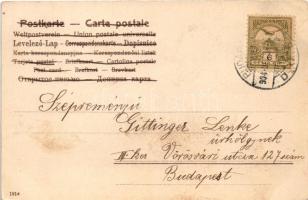 Postkarte — Carte postale
Weltpostverein — Union postale universelle
Levelező-Lap — Correspondenzkarte — Dopisnice
Karta korespondencyjna — Korespondenční lístek
Tarjeta postal — Briefkaart — Cartolina postale
Post card — Brefkort — Brevkort
Открытое письмо — Дописна карта
Szépreményű
Gittinger Lenke
úrhölgynek
III. Ker Vörösvári utcza 127 szám
Budapest